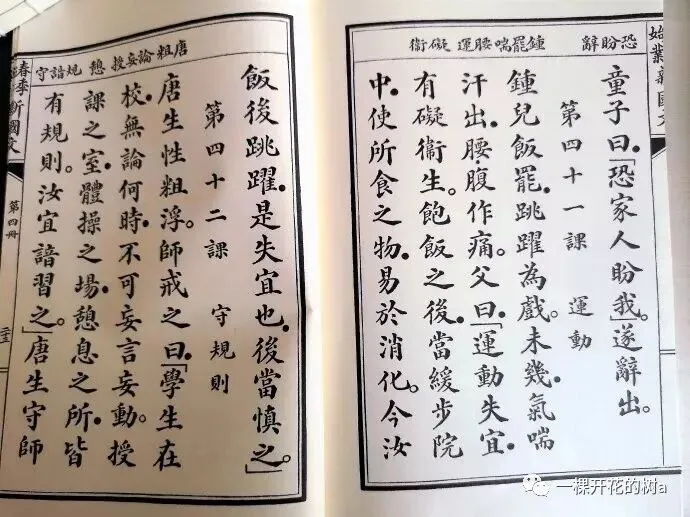 恐盼辭 鍾罷喘腰運 礙衛
童子曰。「恐家人盼我。」遂辭出。
第四十一課 運動
鍾兒飯罷。跳躍為戲。未幾。氣喘
汗出。腰腹作痛。父曰。「運動失宜。
有礙衛生。飽飯之後。當緩步院
中。使所食之物。易於消化。今汝
唐粗論妄授 憩 規諳守
飯後跳躍。是失宜也。後當慎之。」
第四十二課 守規則
唐生性粗浮。師戒之曰。「學生在
校。無論何時。不可妄言妄動。授
課之室。體操之場。憩息之所。皆
有規則。汝宜諳習之。」唐生守師
春季
新國文
第四冊
一棵开花的树a